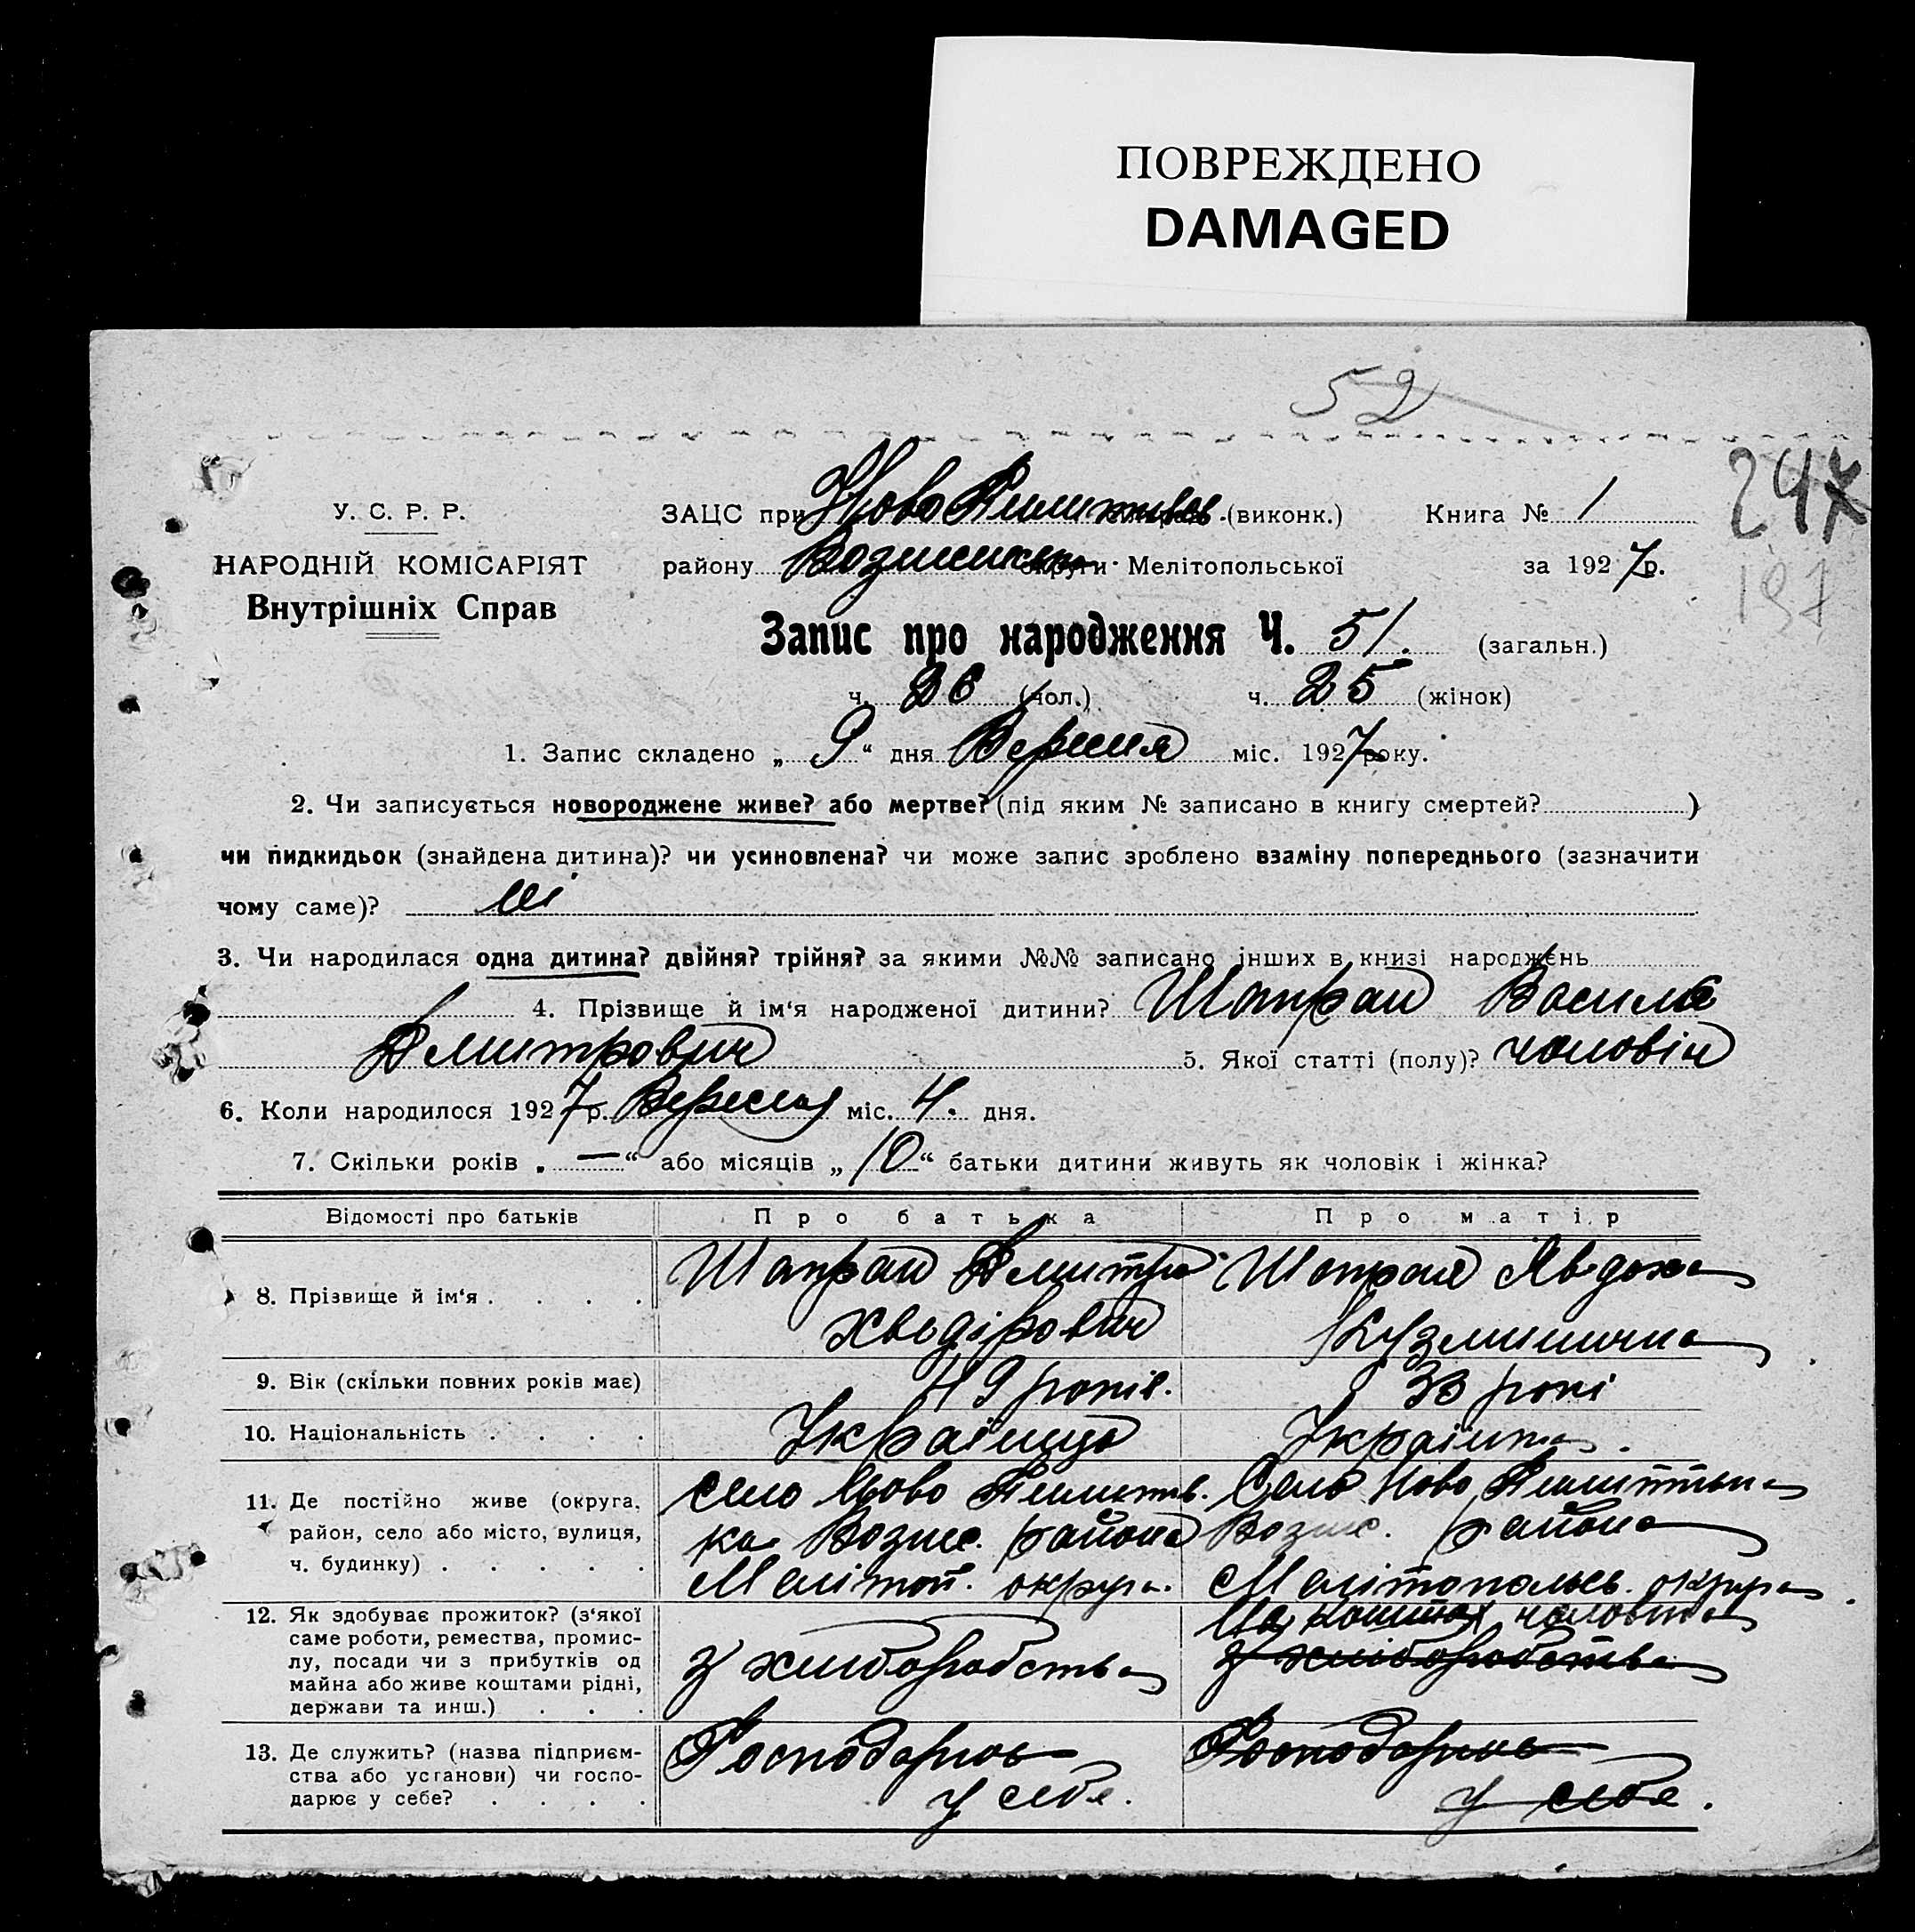 ПОВРЕЖДЕНО
DAMAGED
52
247
197
У. С. Р. Р.
НАРОДНІЙ КОМІСАРІЯТ
Внутрішніх Справ
ЗАЦС при Ново (виконк.) Книга № 1
району округи Мелітопольської за 1927 р.
Запис про народження Ч. 51. (загальн.)
ч. 26 (чол.) ч. 25 (жінок)
1. Запис складено „ 9 “ дня міс. 1927 року.
2. Чи записується новороджене живе? або мертве? (під яким № записано в книгу смертей? )
чи пидкидьок (знайдена дитина)? чи усиновлена? чи може запис зроблено взаміну попереднього (зазначити
чому саме)? ні
3. Чи народилася одна дитина? двійня? трійня? за якими №№ записано інших в книзі народжень
4. Прізвище й ім‘я народженої дитини? Шапран Василь
Дмитрович 5. Якої статті (полу)?
6. Коли народилося 1927 р. Вересня міс. 4. дня.
7. Скільки років „ — “ або місяців „ 10 “ батьки дитини живуть як чоловік і жінка?
Відомості про батьків Про батька Про матір
8. Прізвище й ім‘я . . . . Шапран Дмитро Хведірович
Шапран Явдоха Кузминична
9. Вік (скільки повних років має) 49 років. 33 рокі
10. Національність . . . . Українец Українка.
11. Де постійно живе (округа, район, село або місто, вулиця, ч. будинку) . . . . .
село Ново
ка Возне. района
Меліт. округа.
Село Ново
Возне. района
Мелітопольсь. округа.
12. Як здобуває прожиток? (з‘якої
саме роботи, ремества, промис-
лу, посади чи з прибутків од
майна або живе коштами рідні,
держави та инш.) . . .
з хліборобства
На коштах чоловіка
з хліборобства
13. Де служить? (назва підприєм-
ства або установи) чи госпо-
дарює у себе? . . . .
Господарює
у себе.
Господарює
у себе.